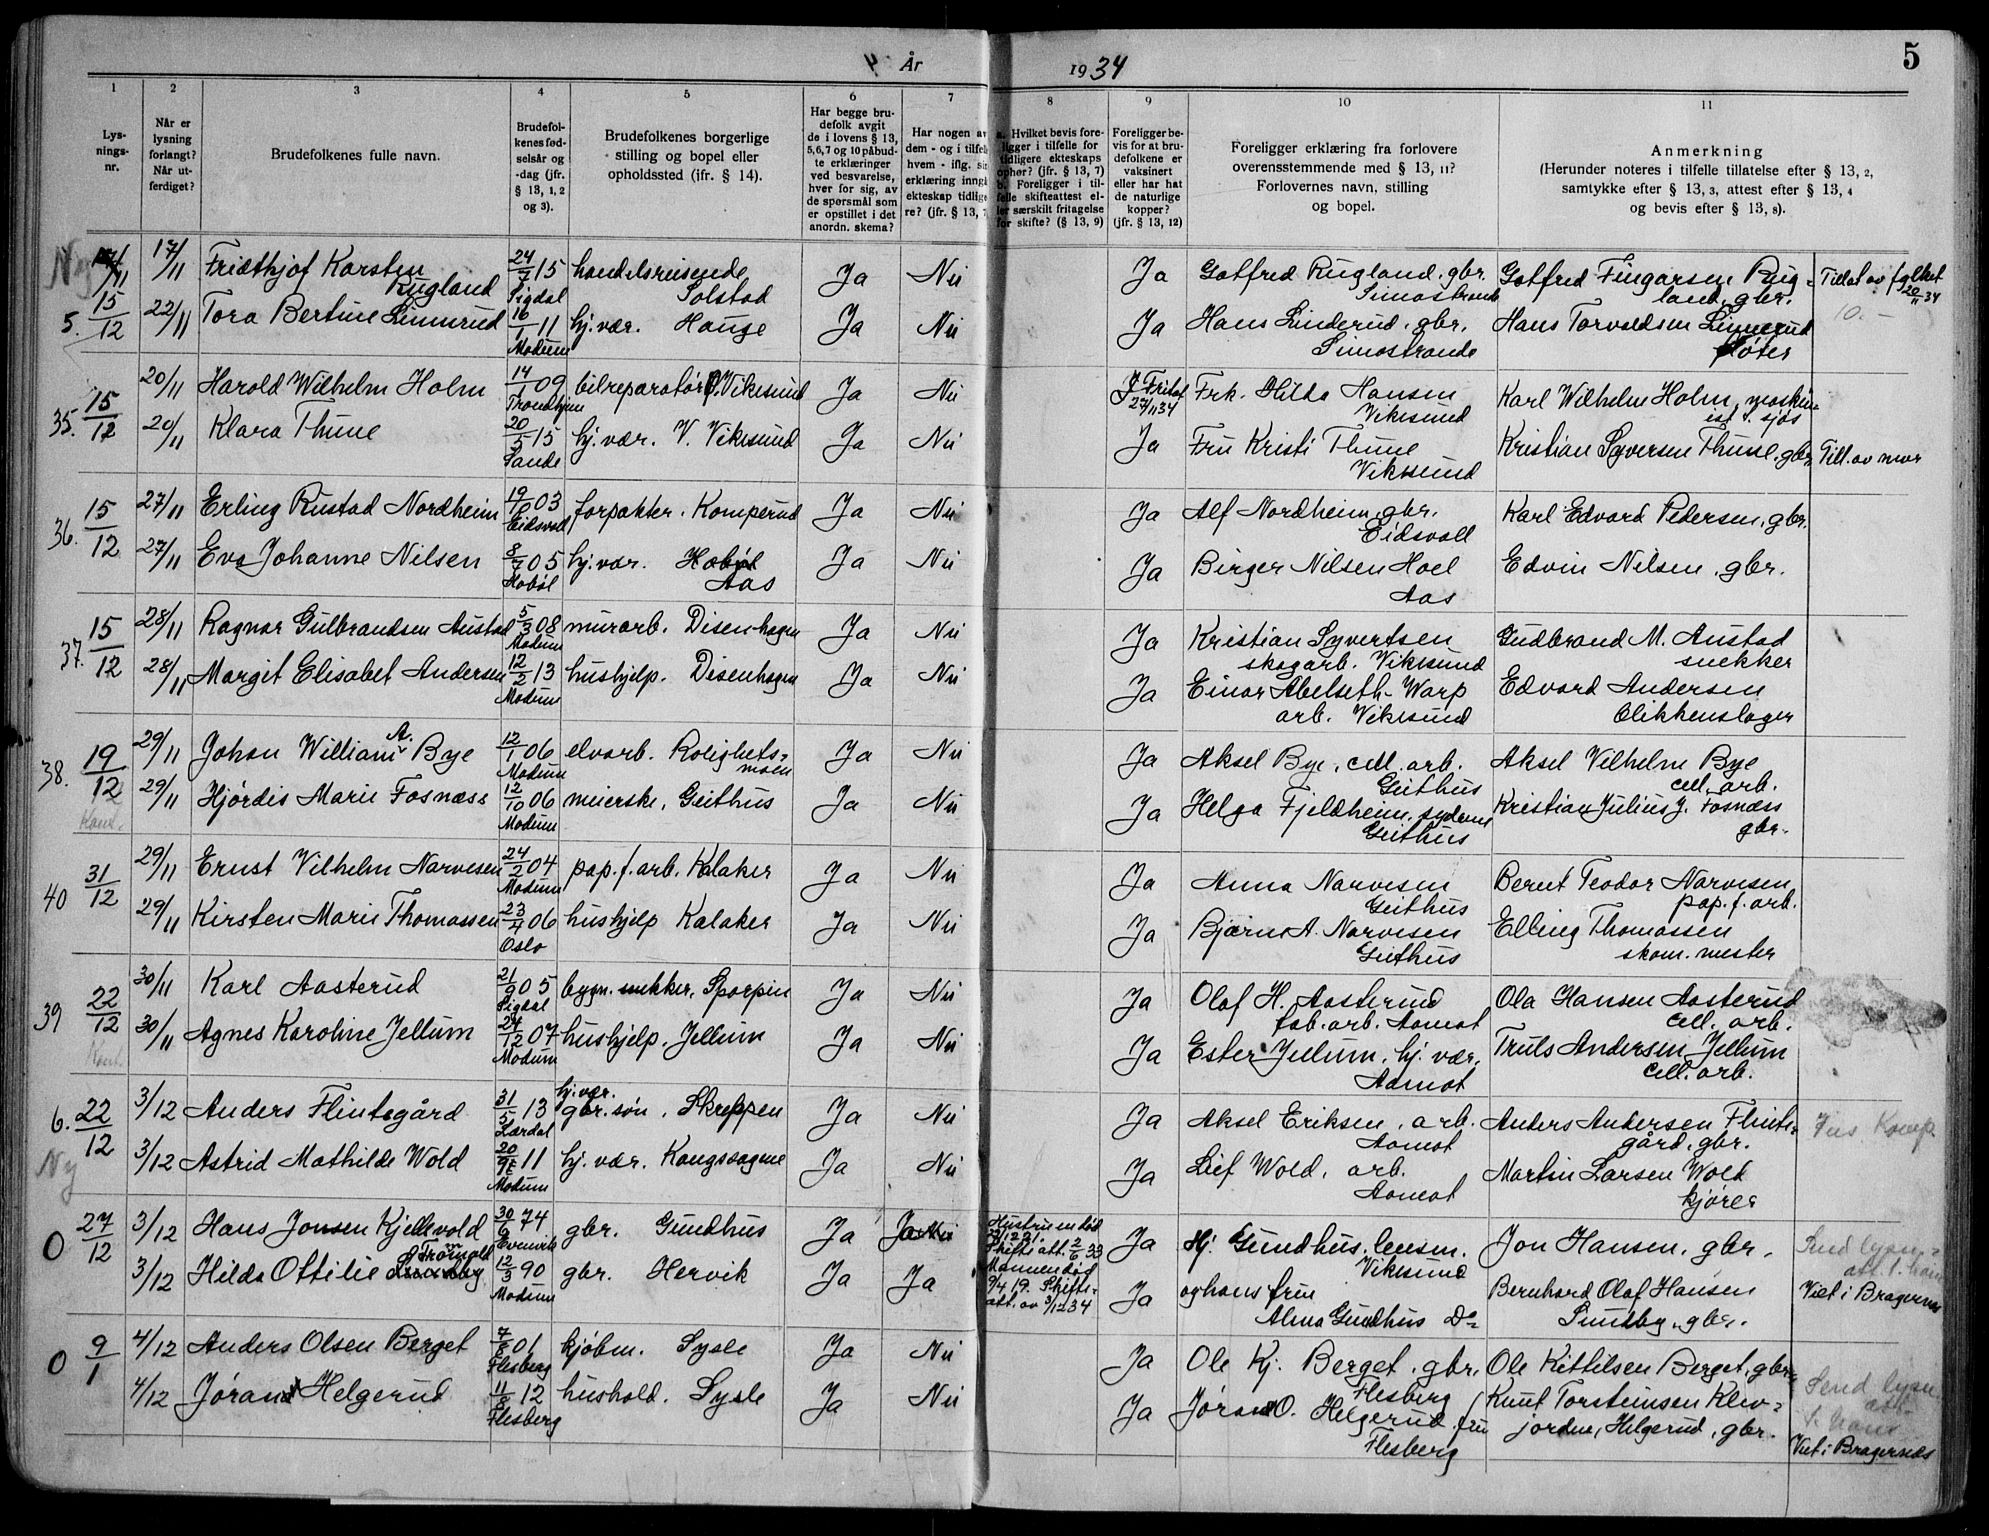 År 1934
5
1 2 3 4 5 6 7 8 9 10 11
Lys-
nings-
nr.
Når er
lysning
forlangt?
Når ut-
ferdiget?
Brudefolkenes fulle navn.
Brudefol-
kenes fød-
selsår og
-dag (jfr.
§ 13, 1, 2
og 3).
Brudefolkenes borgerlige
stilling og bopel eller
opholdssted (ifr. § 14).
Har begge bru-
defolk avgit
de i lovens § 13,
5,6,7 og 10 påbud-
te erklæringer
ved besvarelse,
hver for sig, av
de spørsmål som
er opstillet i det
anordn. skema?
Har nogen av
dem - og i tilfelle
hvem - iflg. sin
erklæring inngå
ekteskap tidlige
re? (jfr. § 13, 7
a. Hvilket bevis fore-
ligger i tilfelle for
tidligere ekteskaps
ophør? (jfr. § 13, 7)
b. Foreligger i til-
felle skifteattest el-
ler særskilt fritagelse
for skifte? (§ 13, 9)
Foreligger be-
vis for at bru-
defolkene er
vaksinert
eller har hat
de naturlige
kopper?
(jfr. § 13, 12)
Foreligger erklæring fra forlovere
overensstemmende med § 13, 11?
Forlovernes navn, stilling
og bopel.
Anmerkning
(Herunder noteres i tilfelle tillatelse efter § 13, 2,
samtykke efter § 13, 3, attest efter § 13, 4
og bevis efter § 13, 8).
Ny 17/11 Fridthjof Karsten Rugland 24/7 15 Sigdal handelsreisende, Solstad Ja Nei Ja Gotfred Rugland, gbr. Simostranda Gotfred Fingarsen Rug-land, gbr. Tillat av fylket 20/11 34
5. 15/12 22/11 Tora Bertine Linnerud 16/1 11 Modum hj. vær. Hauge Ja Nei Ja Hans Linderud, gbr. Simostrande Hans Torvaldsen Linnerud fløter 10.-
35. 15/12 20/11 Harald Wilhelm Holm 14/1 09 Trondhjem bilreparatør, V. Vikesund Ja Nei Ja Fritat 27/11 34 Frk. Hilda Hansen Vikesund Karl Wilhelm Holm, maskin-ist t. sjøs
20/11 Klara Thune 20/5 15 Sande hj. vær. V. Vikesund Ja Nei Ja Fru Kristi Thune Vikesund Kristian Syversen Thune, gbr. Till. av mor
36. 15/12 27/11 Erling Rustad Nordheim 19/6 03 Eidsvold forpakter. Komperud Ja Nei Ja Alf Nordheim, gbr. Eidsvoll Karl Edvard Pedersen, gbr.
27/11 Eva Johanne Nilsen 8/7 05 Hobøl hj. vær. Hobøl Aas Ja Nei Ja Birger Nilsen Hoel Aas Edvin Nilsen, gbr.
37. 15/12 28/11 Ragnar Gulbrandsen Austad 5/3 08 Modum murarb. Disenhagen Ja Nei Ja Kristian Syvertsen skogarb. Vikesund Gudbrand M. Austad snekker
28/11 Margit Elisabet Andersen 12/2 13 Modum hushjelp. Disenhagen Ja Nei Ja Einar Abelseth-Warp arb. Vikesund Edvard Andersen blikkenslager
38. 19/12 29/11 Johan William A. Bye 12/1 06 Modum elvarb. Rolighets-moen Ja Nei Ja Aksel Bye, cell. arb. Geithus Aksel Vilhelm Bye cell. arb.
Kont. 29/11 Hjørdis Marie Fosnæss 12/10 06 Modum meierske, Geithus Ja Nei Ja Helga Fjeldheim, syderske Geithus Kristian Julius J. Fosnæss gbr.
40 31/12 29/11 Ernst Vilhelm Narvesen 24/2 04 Modum pap. f. arb. Kalaker Ja Nei Ja Anna Narvesen Geithus Bernt Teodor Narvesen pap. f. arb.
29/11 Kirsten Marie Thomassen 23/4 06 Oslo hushjelp Kalaker Ja Nei Ja Bjarne A. Narvesen Geithus Elling Thomassen skom. mester
39 22/12 30/11 Karl Aasterud 21/9 05 Sigdal bygn. snekker, Sporpin Ja Nei Ja Olaf H. Aasterud fab. arb. Aamot Ola Hansen Aasterud cell. arb.
Kont. 30/11 Agnes Karoline Jellum 24/12 07 Modum hushjelp, Jellum Ja Nei Ja Ester Jellum, hj. vær. Aamot Truls Andersen Jellum cell. arb.
6. 22/12 3/12 Anders Flintegård 31/5 13 Lærdal hj. vær. gbr. søn, Skreppen Ja Nei Ja Aksel Eriksen, arb. Aamot Anders Andersen Flinte-gård, gbr.
Ny 3/12 Astrid Mathilde Wold 20/5 11 Modum hj. vær. Kongssagene Ja Nei Ja Leif Wold, arb. Aamot Martin Larsen Wold kjører
0 27/12 3/12 Hans Jonsen Kjellevold 30/6 74 Evenvik gbr. Gundhus Ja Ja Nei Hustruen død 1231. Skifteatt. 2/6 33 Ja Hj. Gundhus, lensm. Vikesund Jon Hansen, gbr. Send lysn.-att. t. ham
3/12 Hilda Ottilie Sundby 12/3 90 Modum gbr. Hervik Ja Ja Mannen død 9/4 19. Skifte-att. av 3/12 34 Ja og hans frue Alma Gundhus Do Bernhard Olaf Hansen Sundby, gbr. Viet i Bragernes
0 9/1 4/12 Anders Olsen Berget 7/8 01 Flesberg kjøbm. Sysle Ja Nei Ja Ole Kj. Berget, gbr. Flesberg Ole Kittilsen Berget, gbr. Send lysn. att. t. ham
4/12 Jørand Helgerud 11/8 12 Flesberg hushold. Sysle Ja Nei Ja Jørand O. Helgerud, fru Flesberg Knut Torsteinsen Klev-jordne, Helgerud, gbr. Viet i Bragernes